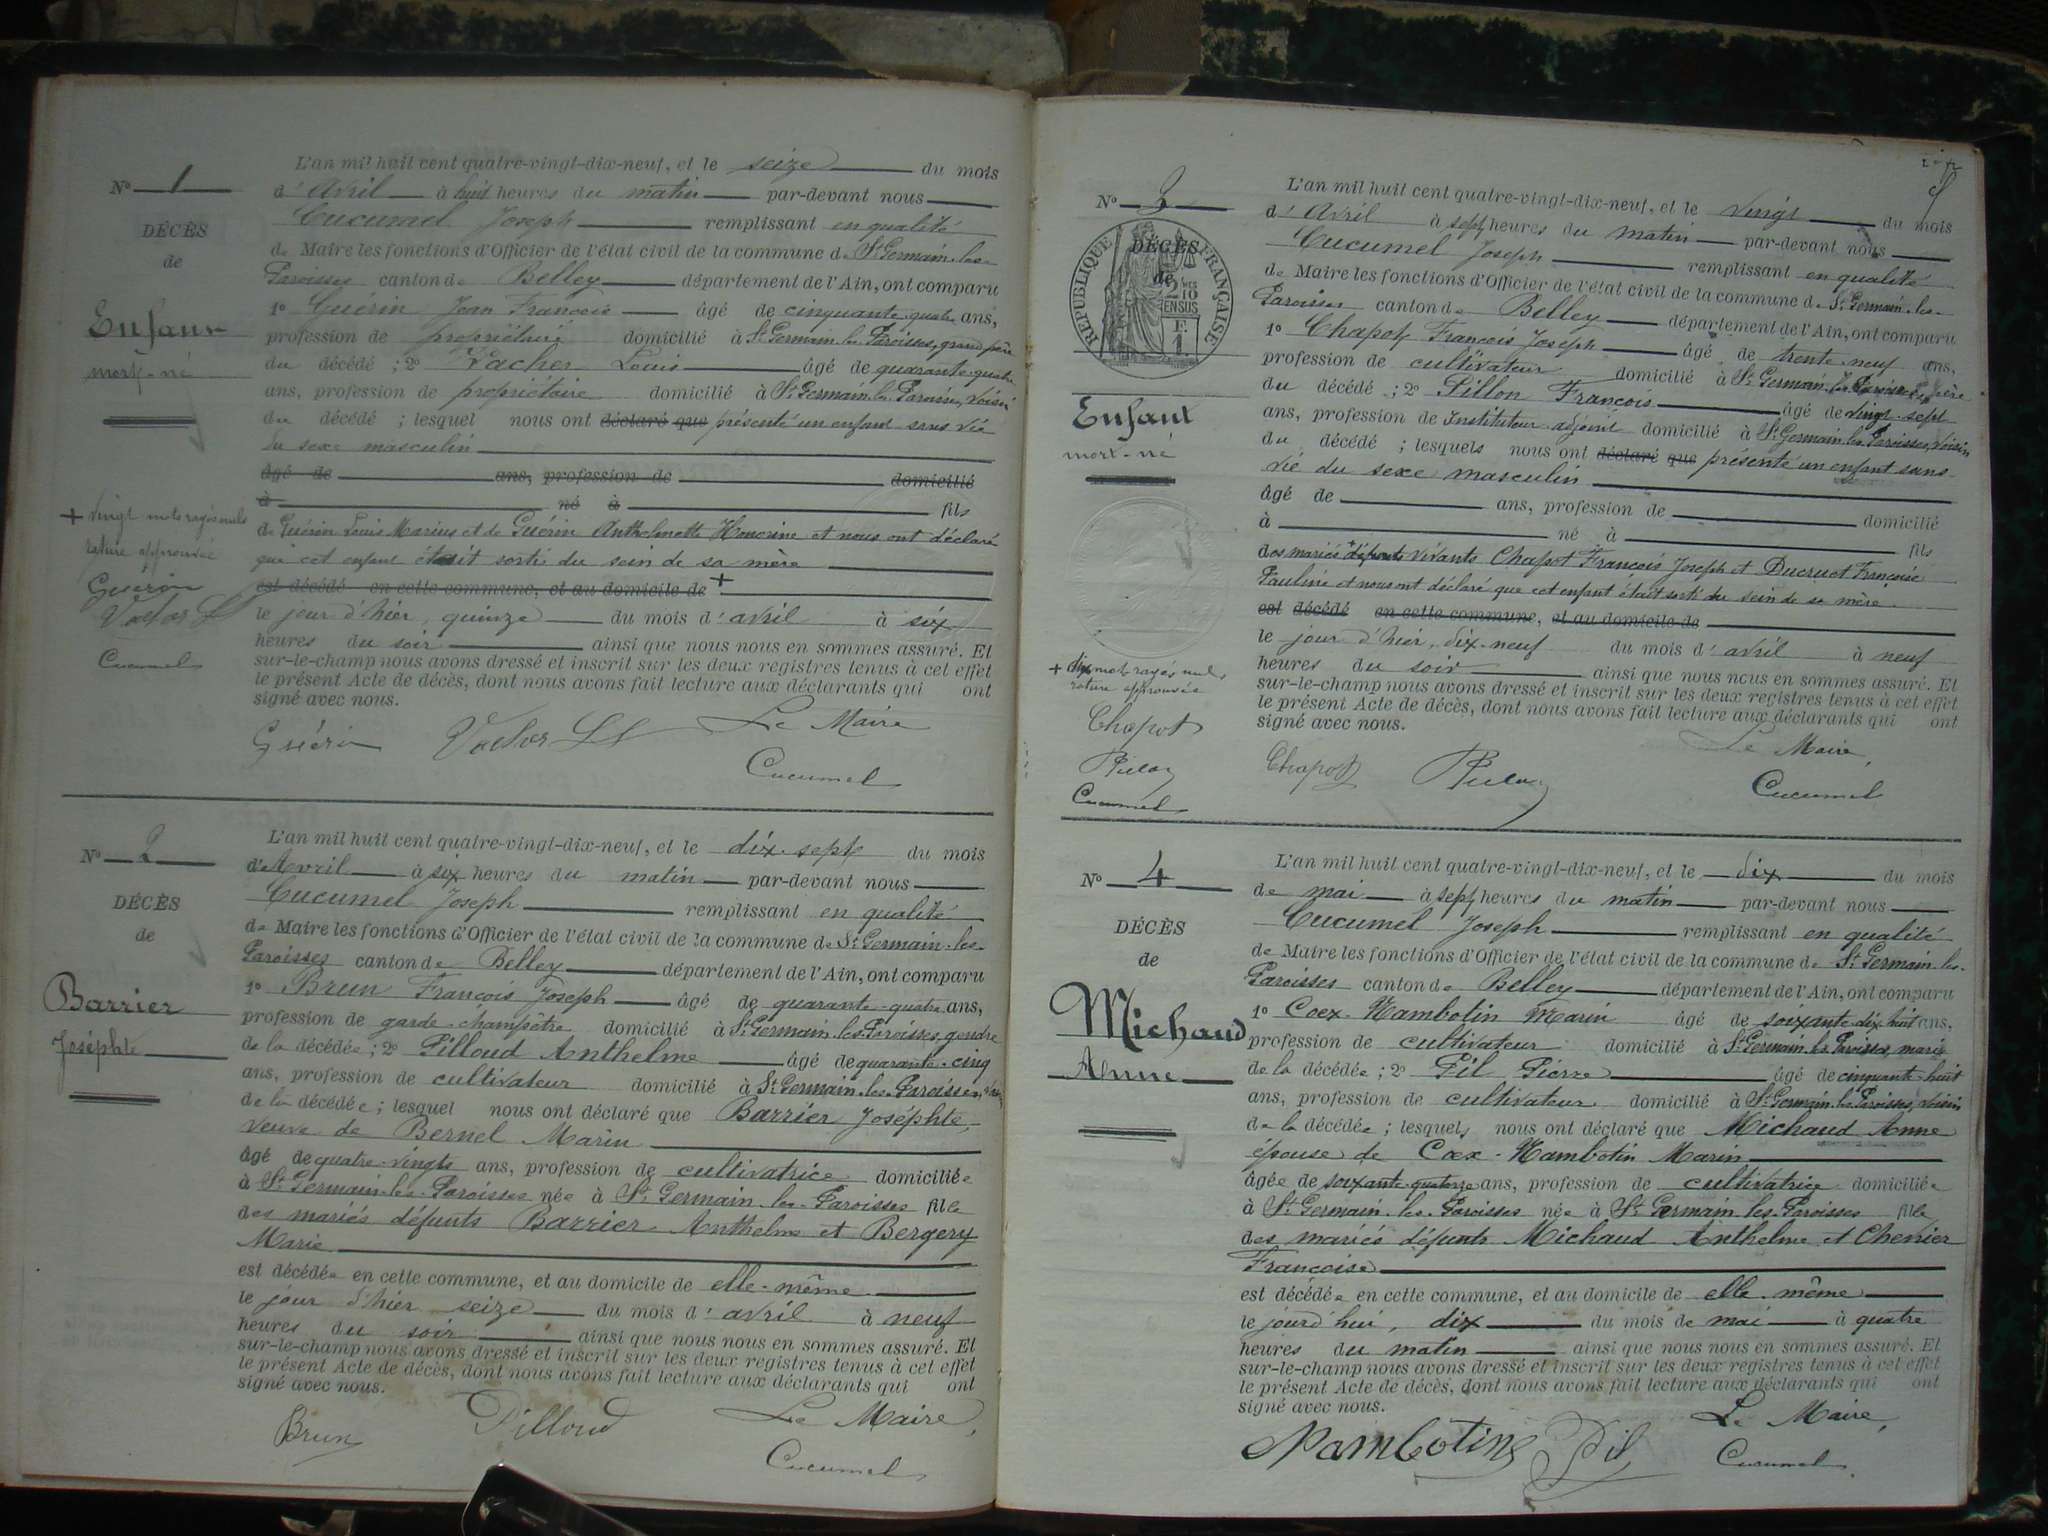 N° 1
DÉCÈS
de
Enfant
mort-né
L'an mil huit cent quatre-vingt-dix-neuf, et le seize du mois
d'Avril à huit heures du matin par-devant nous
Cucumel Joseph remplissant en qualité
de Maire les fonctions d'Officier de l'état civil de la commune de St Germain-les-
Paroisses canton de Belley département de l'Ain, ont comparu
1° Guérin Jean François âgé de cinquante quatre ans,
profession de propriétaire domicilié à St Germain les Paroisses, grand père
du décédé ; 2° Vacher Louis âgé de quarante-quatre
ans, profession de propriétaire domicilié à St Germain les Paroisses, voisin
du décédé ; lesquel nous ont déclaré que présenté un enfant sans vie
du sexe masculin
âgé de ans, profession de domicilié
à né à fils
de Guérin Louis Marius et de Guérin Anthelmette Honorine et nous ont déclaré
que cet enfant était sorti du sein de sa mère
est décédé en cette commune, et au domicile de +
le jour d'hier, quinze du mois d'avril à six
heures du soir ainsi que nous nous en sommes assuré. Et
sur-le-champ nous avons dressé et inscrit sur les deux registres tenus à cet effet
le présent Acte de décès, dont nous avons fait lecture aux déclarants qui ont
signé avec nous.
+ vingt mots rayés nuls
rature approuvée
Guérin
Vacher L
Cucumel
Guérin Vacher L Le Maire
Cucumel
N° 2
DÉCÈS
de
Barrier
Joséphte
L'an mil huit cent quatre-vingt-dix-neuf, et le dix-sept du mois
d'Avril à six heures du matin par-devant nous
Cucumel Joseph remplissant en qualité
de Maire les fonctions d'Officier de l'état civil de la commune de St Germain-les-
Paroisses canton de Belley département de l'Ain, ont comparu
1° Brun François Joseph âgé de quarante-quatre ans,
profession de garde-champêtre domicilié à St Germain-les-Paroisses, gendre
de la décédée ; 2° Pilloud Anthelme âgé de quarante-cinq
ans, profession de cultivateur domicilié à St Germain-les-Paroisses,
de la décédée ; lesquel nous ont déclaré que Barrier Joséphte,
veuve de Bernel Marin
âgé de quatre-vingts ans, profession de cultivatrice domiciliée
à St Germain-les-Paroisses née à St Germain-les-Paroisses fille
des mariés défunts Barrier Anthelme et Bergery
Marie
est décédée en cette commune, et au domicile de elle-même
le jour d'hier seize du mois d'avril à neuf
heures du soir ainsi que nous nous en sommes assuré. Et
sur-le-champ nous avons dressé et inscrit sur les deux registres tenus à cet effet
le présent Acte de décès, dont nous avons fait lecture aux déclarants qui ont
signé avec nous.
Brun Pilloud Le Maire,
Cucumel
N° 3
DÉCÈS
de
RÉPUBLIQUE FRANÇAISE
Enfant
mort-né
L'an mil huit cent quatre-vingt-dix-neuf, et le vingt du mois
d'Avril à sept heures du matin par-devant nous
Cucumel Joseph remplissant en qualité
de Maire les fonctions d'Officier de l'état civil de la commune de St Germain-les-
Paroisses canton de Belley département de l'Ain, ont comparu
1° Chapot François Joseph âgé de trente-neuf ans,
profession de cultivateur domicilié à St Germain-les-Paroisses, père
du décédé ; 2° Pillon François âgé de vingt-sept
ans, profession de Instituteur adjoint domicilié à St Germain les Paroisses, voisin
du décédé ; lesquels nous ont déclaré que présenté un enfant sans
vie du sexe masculin
âgé de ans, profession de domicilié
à né à fils
des mariés défunts vivants Chapot François Joseph et Ducruet Françoise
Pauline et nous ont déclaré que cet enfant était sorti du sein de sa mère
est décédé en cette commune, et au domicile de
le jour d'hier, dix-neuf du mois d'avril à neuf
heures du soir ainsi que nous nous en sommes assuré. Et
sur-le-champ nous avons dressé et inscrit sur les deux registres tenus à cet effet
le présent Acte de décès, dont nous avons fait lecture aux déclarants qui ont
signé avec nous.
+ dix mots rayés nuls
rature approuvée
Chapot
Cucumel
Chapot Le Maire,
Cucumel
N° 4
DÉCÈS
de
Michaud
Anne
L'an mil huit cent quatre-vingt-dix-neuf, et le dix du mois
de mai à sept heures du matin par-devant nous
Cucumel Joseph remplissant en qualité
de Maire les fonctions d'Officier de l'état civil de la commune de St Germain-les-
Paroisses canton de Belley département de l'Ain, ont comparu
1° Coex-Mambotin Marin âgé de soixante-dix-huit ans,
profession de cultivateur domicilié à St Germain-les-Paroisses, mari
de la décédée ; 2° Pil Pierre âgé de cinquante-huit
ans, profession de cultivateur domicilié à St Germain-les-Paroisses, voisin
de la décédée ; lesquels nous ont déclaré que Michaud Anne
épouse de Coex-Mambotin Marin
âgée de soixante-quatorze ans, profession de cultivatrice domiciliée
à St Germain-les-Paroisses née à St Germain-les-Paroisses fille
des mariés défunts Michaud Anthelme et Chenier
Françoise
est décédée en cette commune, et au domicile de elle-même
le jourd'hui, dix du mois de mai à quatre
heures du matin ainsi que nous nous en sommes assuré. Et
sur-le-champ nous avons dressé et inscrit sur les deux registres tenus à cet effet
le présent Acte de décès, dont nous avons fait lecture aux déclarants qui ont
signé avec nous.
Mambotin Pil Le Maire,
Cucumel